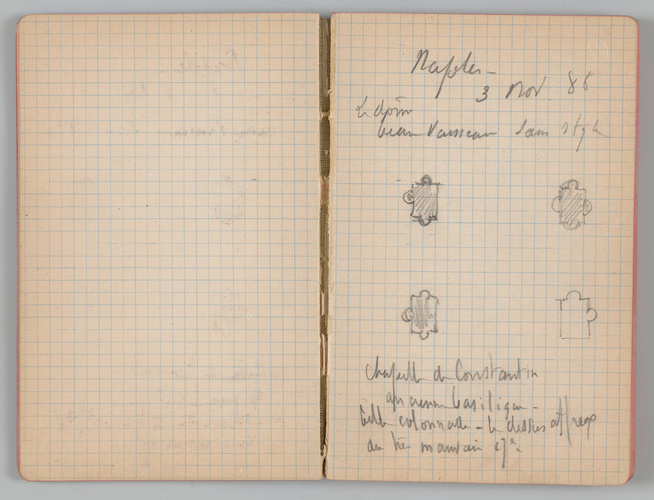 Naples –
3 Nov. 88
Le dôm
beau Vaisseau Sans style
chapelle de Constantin
ancienne basilique –
belle colonnade – le dessus affreux
du très mauvais 17e.